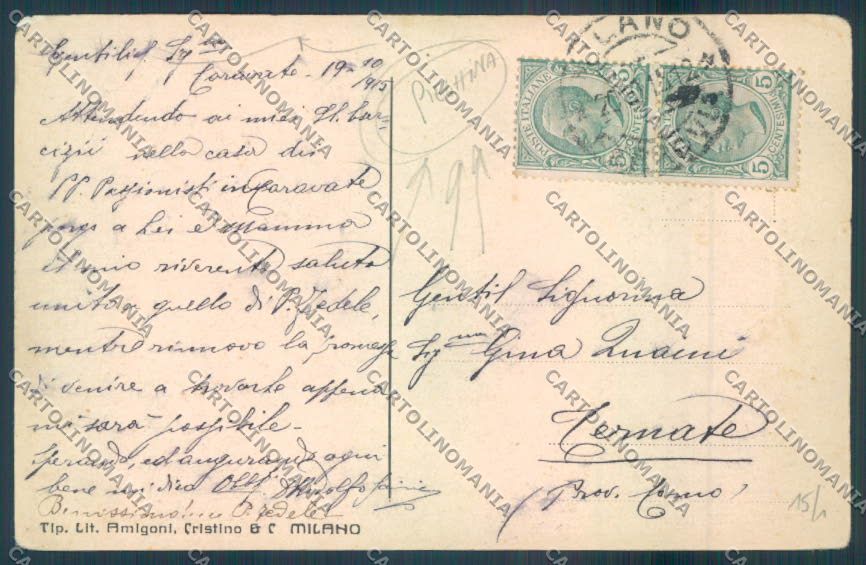 Gentilis. Sig.na
Caravate - 19-10
915
Attendendo ai miei SS. Eser-
cizii nella casa dei
PP. Passionisti in Caravate
porgo a Lei e Mamma
il mio riverente saluto
unito a quello di P. Fedele,
mentre rinnovo la promessa
di venire a trovarle appena
mi sarà possibile.
Sperando, ed augurando ogni
bene mi dico Obbl.
P. Fedele
Tip. Lit. Amigoni, Cristino & C MILANO
PIECHINA
MILANO
POSTE ITALIANE
5 CENTESIMI 5
POSTE ITALIANE
5 CENTESIMI 5
Gentil Signorina
Sig.na Gina
Ternate
(Prov. Como)
15/1
CARTOLINOMANIA